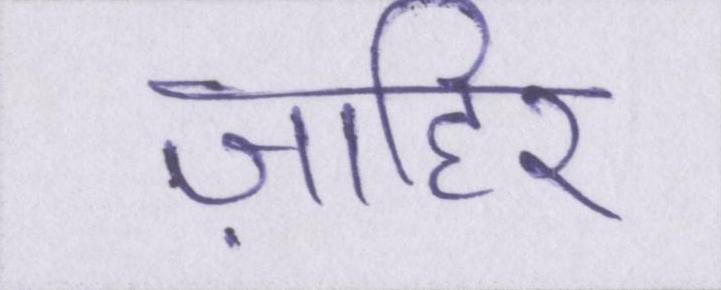 ज़ाहिर